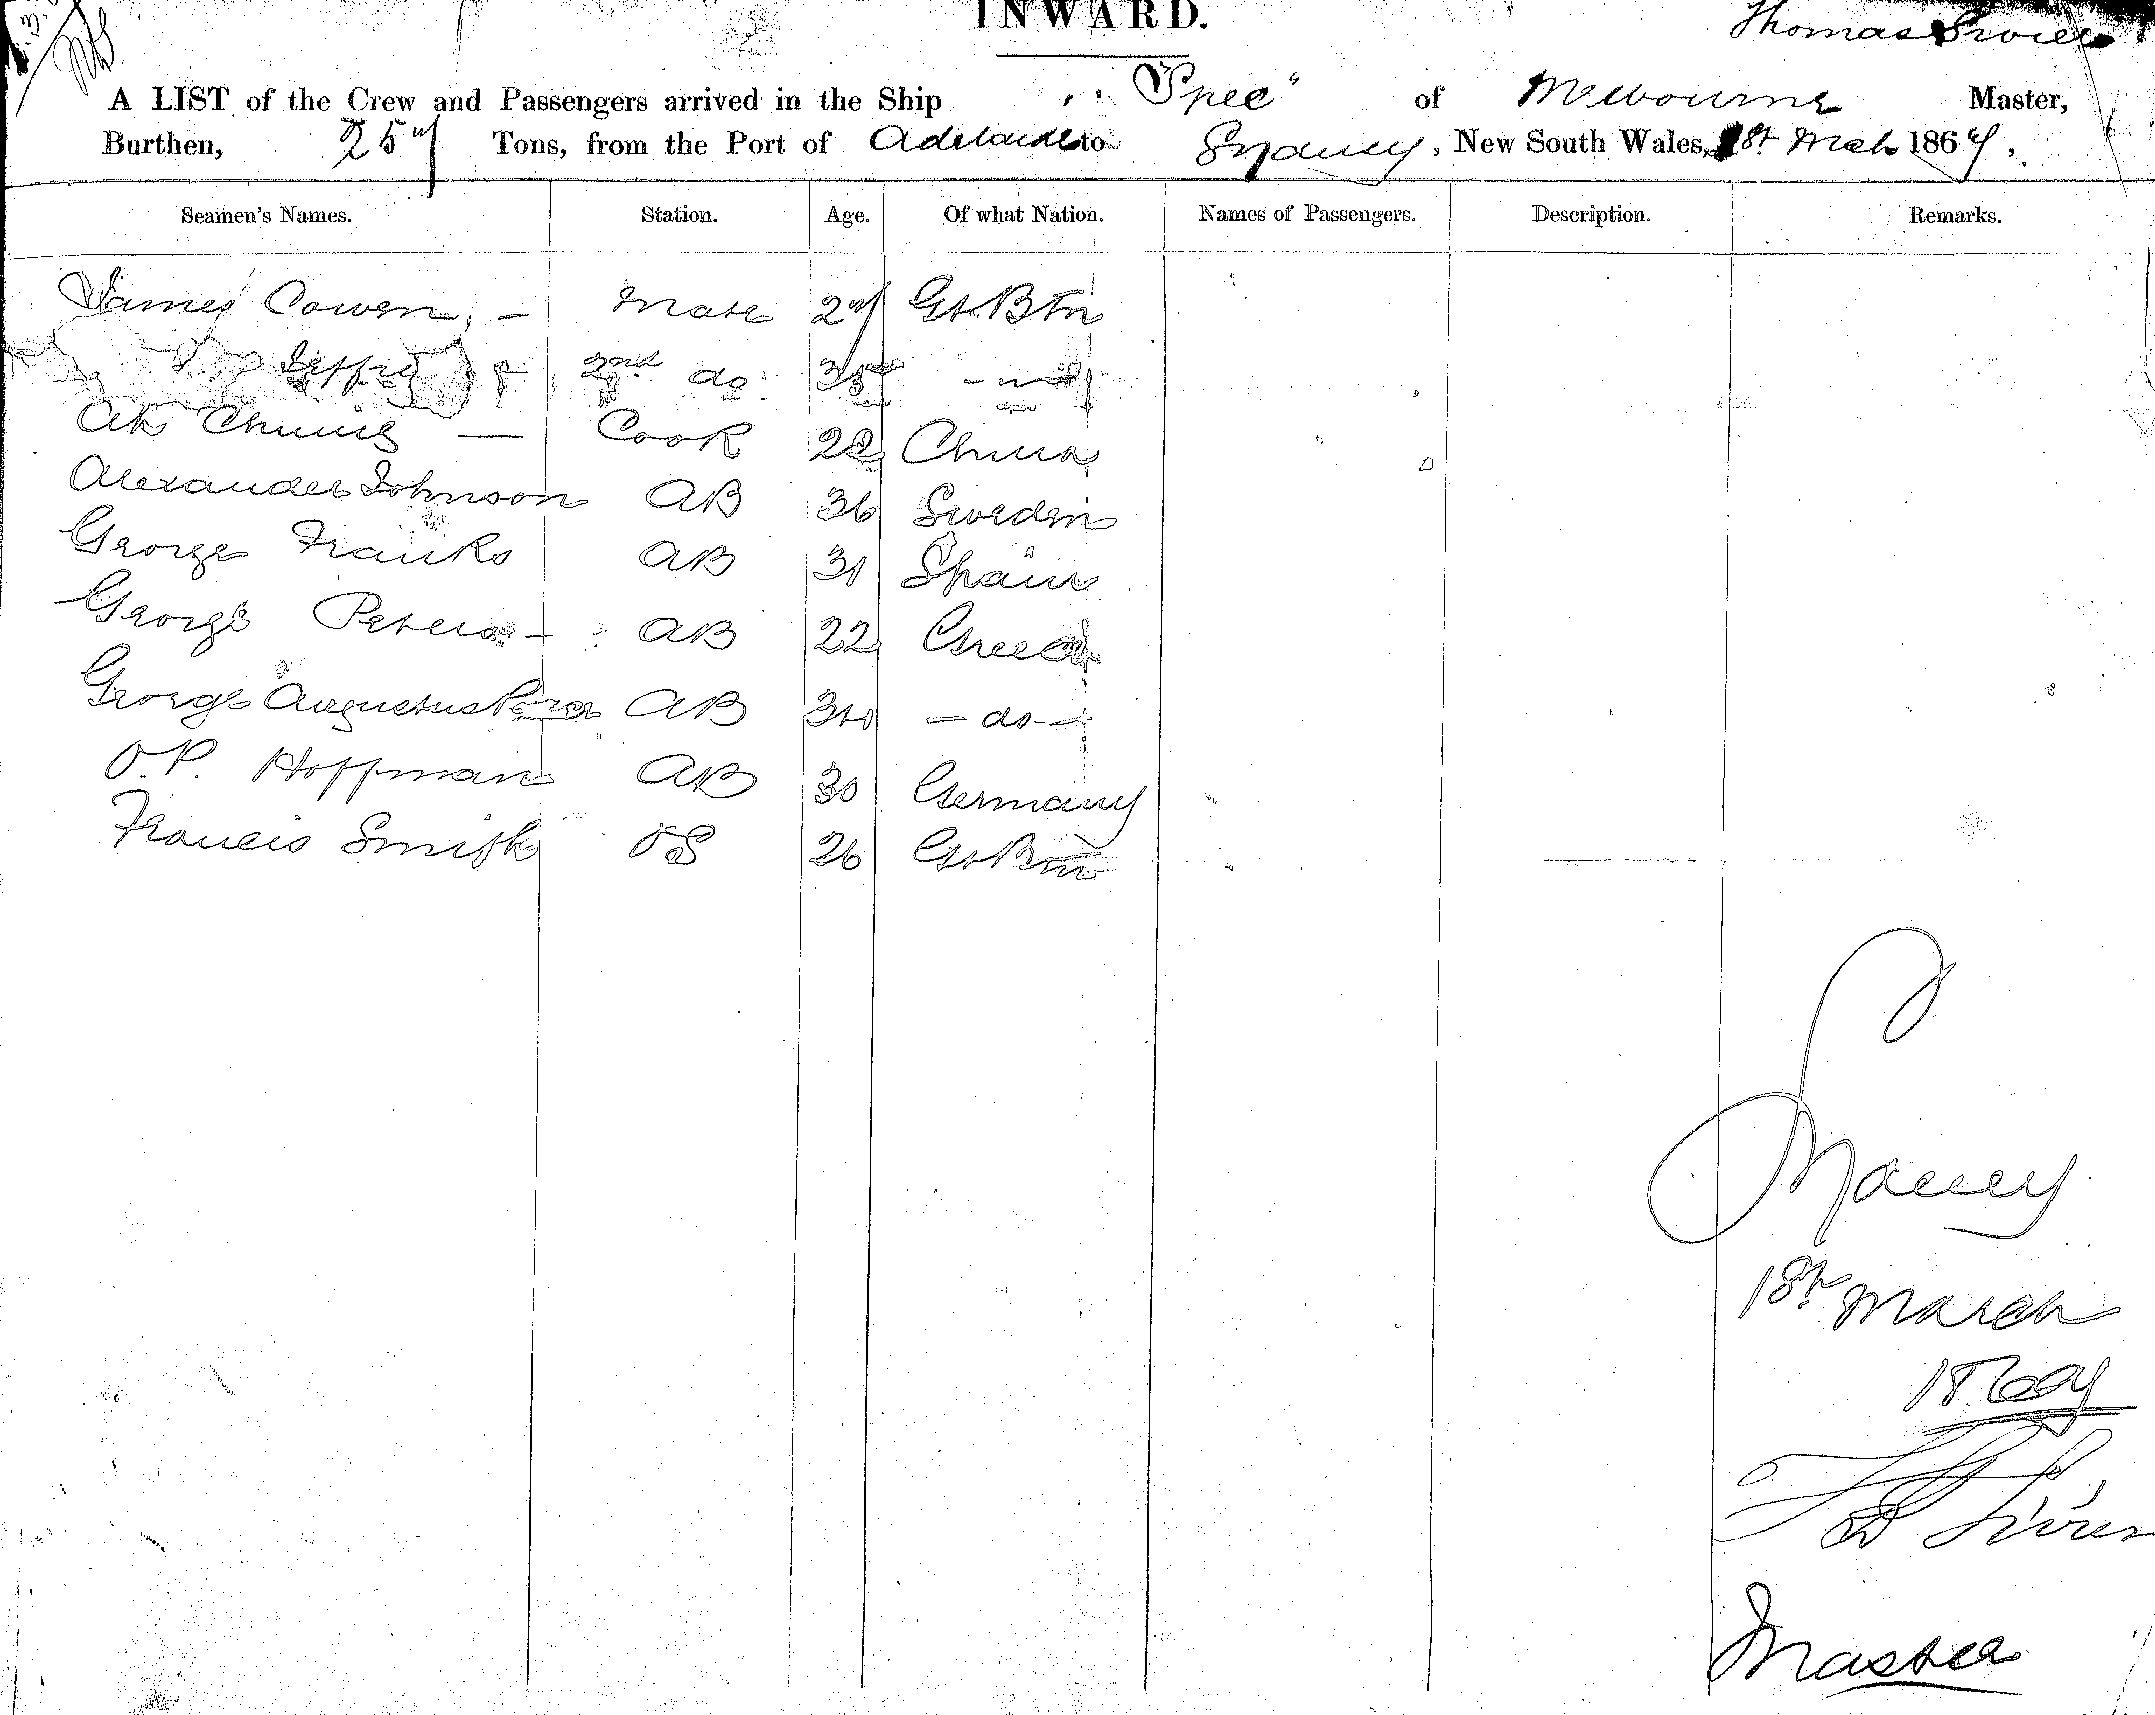 INWARD.
Thomas
A LIST of the Crew and Passengers arrived in the Ship "Spec" of Melbourne Master,
Burthen, Tons, from the Port of Adelaide to Sydney, New South Wales, 18t March 1869.
Seamen's Names. Station. Age. Of what Nation. Names of Passengers. Description. Remarks.
James Cowen, — Mate 29 Gt Btn
2nd do
Ah — Cook 22 China
Alexander Johnson AB 36 Sweden
George Franks AB 31 Spain
George Peters — AB 22 Greece
George Augustus AB — do —
O.P. Hoffman AB 30 Germany
Francis Smith OS 26 Gt Btn
Sydney
18t March
1869
Master